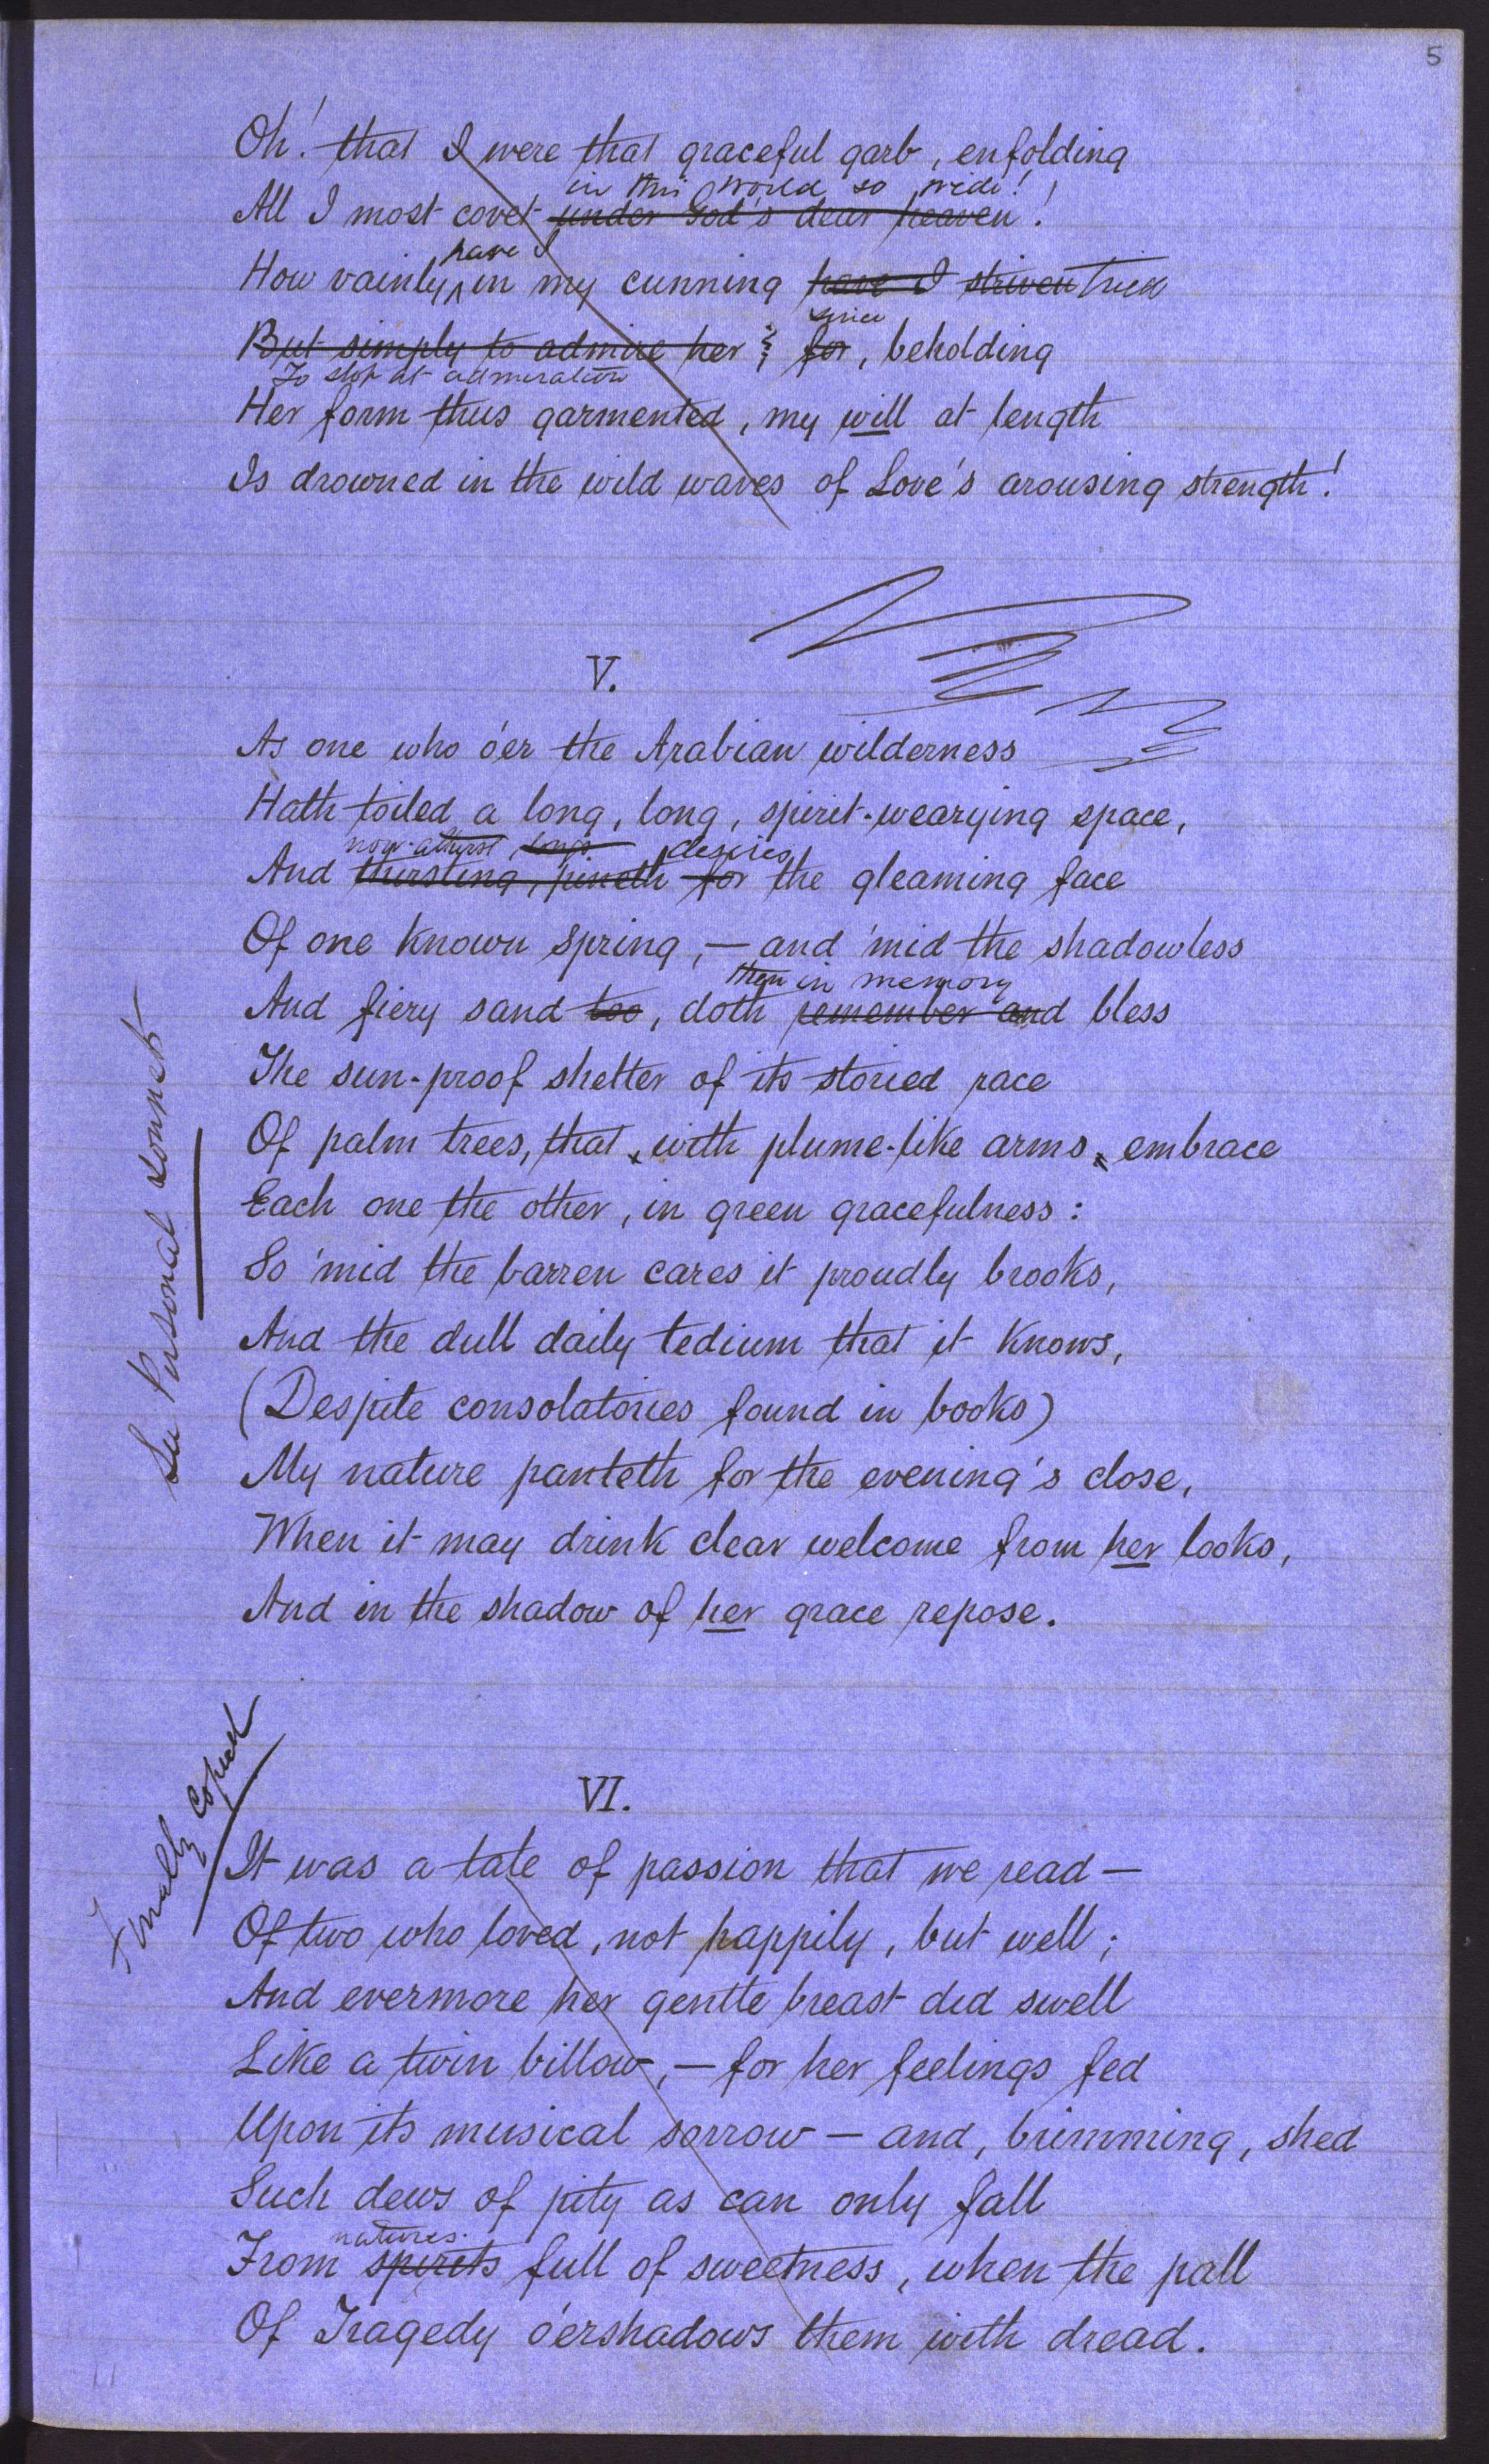 5
Oh! that I were that graceful garb, enfolding
in this world so wide!
All I most covet under God's dear heaven!
have I
How vainly, in my cunning have I striven tried
since
But simply to admire her; for, beholding
To stop at admiration
Her form thus garmented, my will at length
Is drowned in the wild waves of Love's arousing strength!
V.
As one who o'er the Arabian wilderness
Hath toiled a long, long, spirit-wearying space,
now athirst, longs desires
And thirsting, pineth for the gleaming face
Of one known spring, — and 'mid the shadowless
then in memory
And fiery sand too, doth remember and bless
The sun-proof shelter of its storied race
Of palm trees, that, with plume-like arms, embrace
Each one the other, in green gracefulness:
So 'mid the barren cares it proudly brooks,
And the dull daily tedium that it knows,
(Despite consolatories found in books)
My nature panteth for the evening's close,
When it may drink clear welcome from her looks,
And in the shadow of her grace repose.
See Personal Sonnets
VI.
Finally Copied
It was a tale of passion that we read —
Of two who loved, not happily, but well;
And evermore her gentle breast did swell
Like a twin billow, — for her feelings fed
Upon its musical sorrow — and, brimming, shed
Such dews of pity as can only fall
natures
From spirits full of sweetness, when the pall
Of Tragedy o'ershadows them with dread.